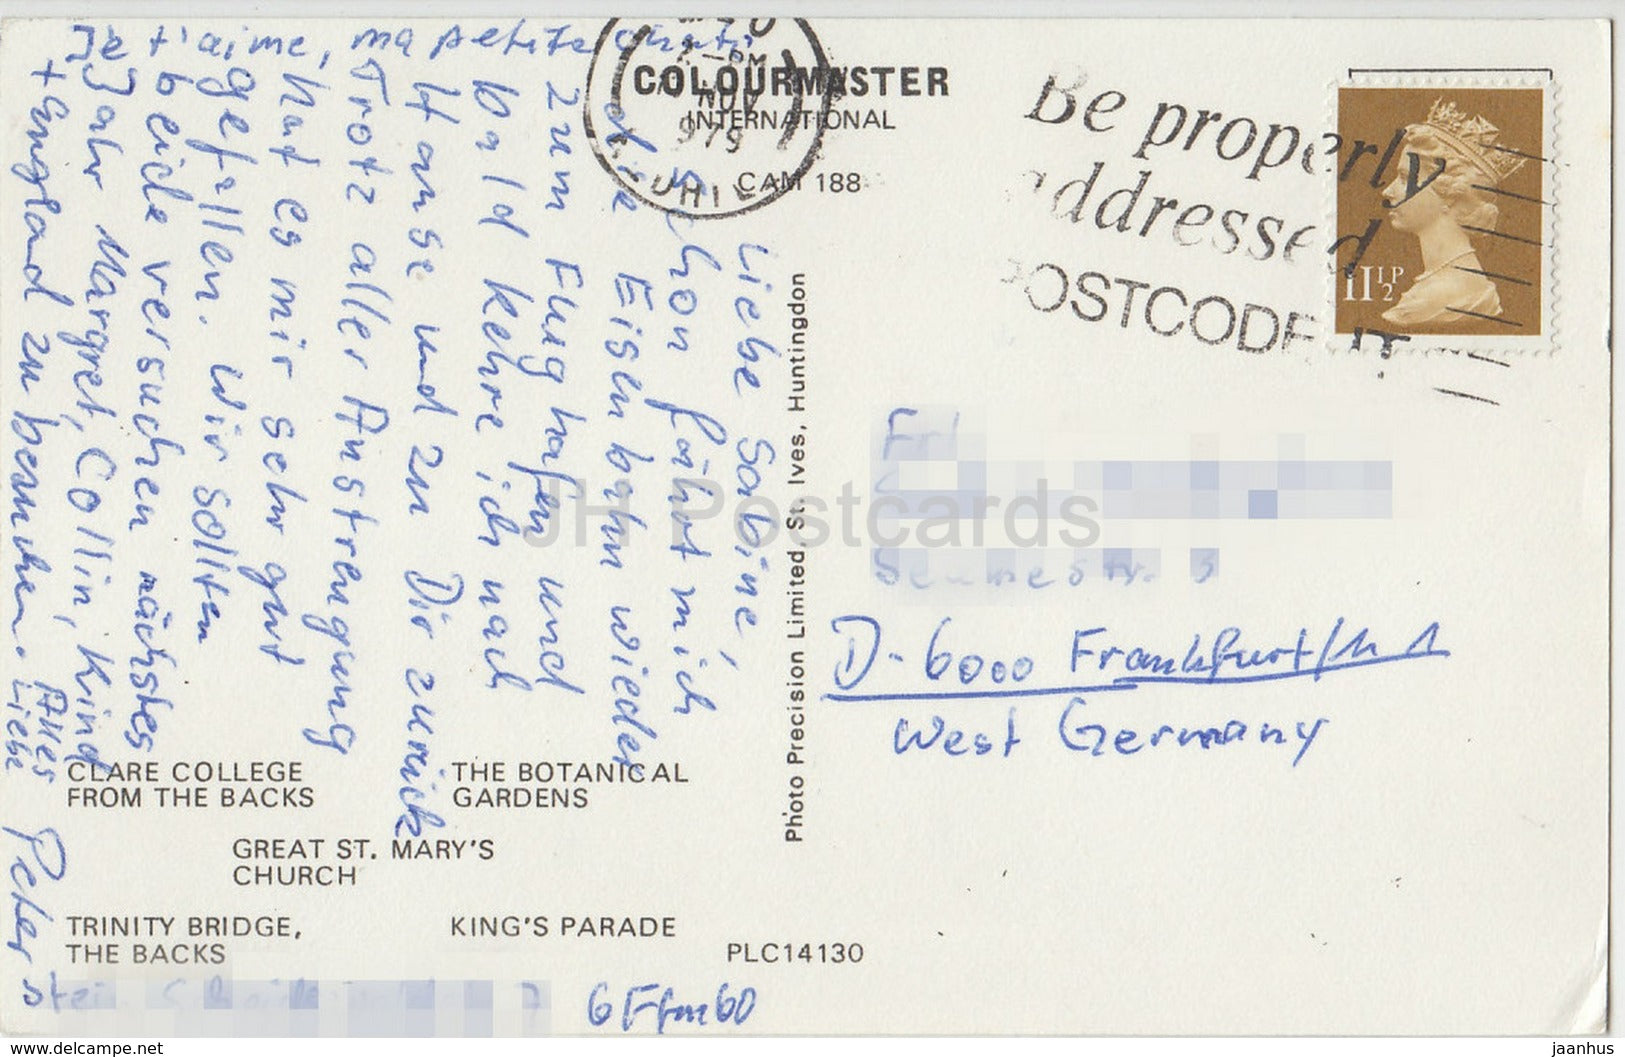 Je t'aime, ma petite
COLOURMASTER
INTERNATIONAL
CAM 188
NOV
979
Be properly
addressed
POSTCODE IT
11½P
Liebe Sabine,
schon fährt mich
die Eisenbahn wieder
zum Flughafen und
bald kehre ich nach
Hause und zu Dir zurück
Trotz aller Anstrengung
hat es mir sehr gut
gefallen. Wir sollten
beide versuchen nächstes
Jahr Margret, Collin, Kind
+ England zu besuchen. Alles
Liebe
Peter
Photo Precision Limited, St. Ives, Huntingdon
Frl
D-6000 Frankfurt/M 1
West Germany
CLARE COLLEGE
FROM THE BACKS
THE BOTANICAL
GARDENS
GREAT ST. MARY'S
CHURCH
TRINITY BRIDGE,
THE BACKS
KING'S PARADE
PLC14130
6 Ffm 60
JH Postcards
www.delcampe.net
jaanhus